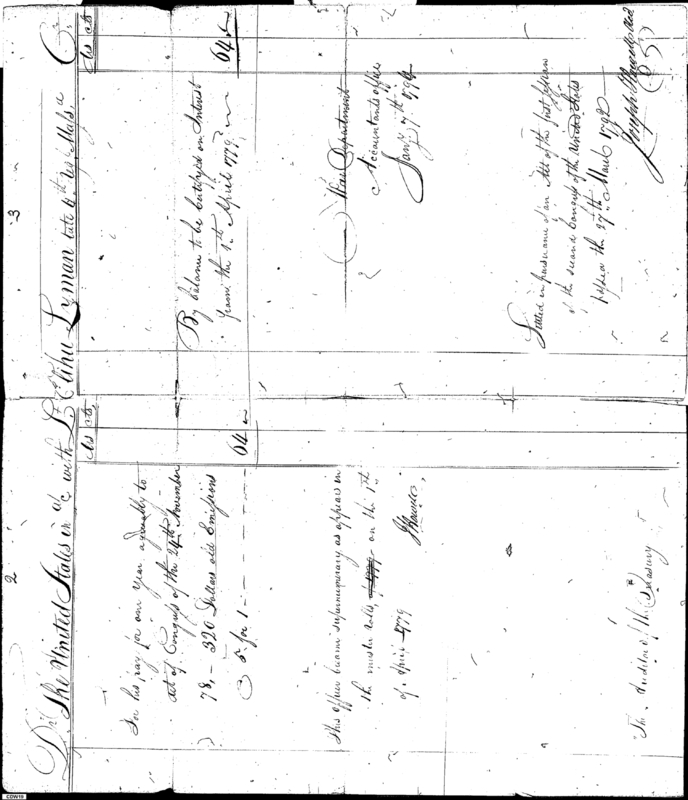 2
Dr. The United States in a/c with Lt. Elihu Lyman late 6th Regt. Mass. a Cr.
Dls cts
For his pay for one year agreeably to
Act of Congress of the 24th November
78, - 320 Dollars old Emissions
@ 5 for 1 - - - - - - 64 "
This officer became supernumerary as appears in
the muster rolls, of 1779 on the 1st
of April 1779
JHowell
The Auditor of the Treasury
3
Dls cts
By balance to be certifyed on Interest
from the 1st April 1779 64 "
War Department
Accountants office
Jany 7th 1794
Settled in pursuance of an Act of the first Session
of the second Congress of the United States
passed the 27th March 1792
Joseph Howell
CDW19